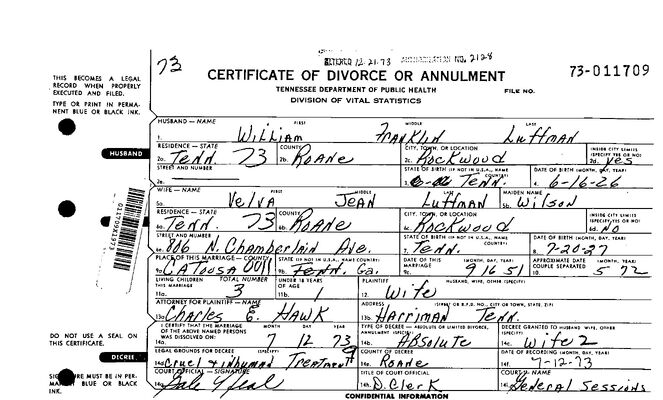 ALTERED 12-21-73 AUTHORIZATION NO. 2128
73
CERTIFICATE OF DIVORCE OR ANNULMENT
73-011709
TENNESSEE DEPARTMENT OF PUBLIC HEALTH
FILE NO.
DIVISION OF VITAL STATISTICS
THIS BECOMES A LEGAL
RECORD WHEN PROPERLY
EXECUTED AND FILED.
TYPE OR PRINT IN PERMA-
NENT BLUE OR BLACK
INK.
HUSBAND
HUSBAND — NAME FIRST MIDDLE LAST
1. William Franklin Luffman
RESIDENCE — STATE COUNTY CITY, TOWN, OR LOCATION INSIDE CITY LIMITS (SPECIFY YES OR NO)
2a. Tenn. 73 2b. Roane 2c. Rockwood 2d. yes
STREET AND NUMBER STATE OF BIRTH (IF NOT IN U.S.A., NAME COUNTRY) DATE OF BIRTH (MONTH, DAY, YEAR)
2e. 3. Tenn. 4. 6-16-26
WIFE — NAME FIRST MIDDLE LAST MAIDEN NAME
5a. Velva Jean Luffman 5b. Wilson
RESIDENCE — STATE COUNTY CITY, TOWN, OR LOCATION INSIDE CITY LIMITS (SPECIFY YES OR NO)
6a. Tenn. 73 6b. Roane 6c. Rockwood 6d. No
STREET AND NUMBER STATE OF BIRTH (IF NOT IN U.S.A., NAME COUNTRY) DATE OF BIRTH (MONTH, DAY, YEAR)
6e. 806 N. Chamberlain Ave. 7. Tenn. 8. 7-20-27
PLACE OF THIS MARRIAGE — COUNTY STATE (IF NOT IN U.S.A., NAME COUNTRY) DATE OF THIS MARRIAGE (MONTH, DAY, YEAR) APPROXIMATE DATE COUPLE SEPARATED (MONTH, DAY, YEAR)
9a. Catoosa 9b. Tenn. Ga. 9c. 9 16 51 10. 5 72
LIVING CHILDREN THIS MARRIAGE TOTAL NUMBER UNDER 18 YEARS OF AGE PLAINTIFF HUSBAND, WIFE, OTHER (SPECIFY)
11a. 3 11b. 1 12. Wife
ATTORNEY FOR PLAINTIFF — NAME ADDRESS (STREET OR R.F.D. NO., CITY OR TOWN, STATE, ZIP)
13a. Charles E. Hawk 13b. Harriman Tenn.
I CERTIFY THAT THE MARRIAGE OF THE ABOVE NAMED PERSONS WAS DISSOLVED ON: MONTH DAY YEAR TYPE OF DECREE — ABSOLUTE OR LIMITED DIVORCE, ANNULMENT (SPECIFY) DECREE GRANTED TO HUSBAND WIFE, OTHER (SPECIFY)
14a. 7 12 73 14b. Absolute 14c. Wife 2
DO NOT USE A SEAL ON
THIS CERTIFICATE.
DECREE
LEGAL GROUNDS FOR DECREE (SPECIFY) COUNTY OF DECREE DATE OF RECORDING (MONTH, DAY, YEAR)
14d. Cruel & inhuman Treatment 9 14e. Roane 14f. 7-12-73
SIGNATURE MUST BE IN PER-
MANENT BLUE OR BLACK
INK.
COURT OFFICIAL — SIGNATURE TITLE OF COURT OFFICIAL COURT — NAME
14g. 14h. D. Clerk 14i. General Sessions
CONFIDENTIAL INFORMATION
011709X1973